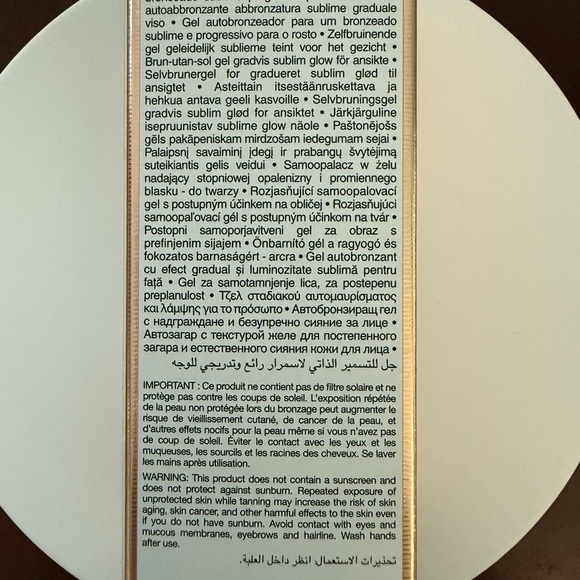 autoabbronzante abbronzatura sublime graduale
viso • Gel autobronzeador para um bronzeado
sublime e progressivo para o rosto • Zelfbruinende
gel geleidelijk sublieme teint voor het gezicht •
Brun-utan-sol gel gradvis sublim glow för ansikte •
Selvbrunergel for gradueret sublim glød til
ansigtet • Asteittain itsestäänruskettava ja
hehkua antava geeli kasvoille • Selvbruningsgel
gradvis sublim glød for ansiktet • Järkjärguline
isepruunistav sublime glow näole • Paštonējošs
gēls pakāpeniskam mirdzošam iedegumam sejai •
Palaipsnį savaiminį įdegį ir prabangų švytėjimą
suteikiantis gelis veidui • Samoopalacz w żelu
nadający stopniowej opalenizny i promiennego
blasku - do twarzy • Rozjasňující samoopalovací
gel s postupným účinkem na obličej • Rozjasňujúci
samoopaľovací gél s postupným účinkom na tvár •
Postopni samoporjavitveni gel za obraz s
prefinjenim sijajem • Önbarnító gél a ragyogó és
fokozatos barnaságért - arcra • Gel autobronzant
cu efect gradual și luminozitate sublimă pentru
față • Gel za samotamnjenje lica, za postepenu
preplanulost • Τζελ σταδιακού αυτομαυρίσματος
και λάμψης για το πρόσωπο • Автобронзиращ гел
с надграждане и безупречно сияние за лице •
Автозагар с текстурой желе для постепенного
загара и естественного сияния кожи для лица •
جل للتسمير الذاتي لاسمرار رائع وتدريجي للوجه
IMPORTANT : Ce produit ne contient pas de filtre solaire et ne
protège pas contre les coups de soleil. L'exposition répétée
de la peau non protégée lors du bronzage peut augmenter le
risque de vieillissement cutané, de cancer de la peau, et
d'autres effets nocifs pour la peau même si vous n'avez pas
de coup de soleil. Éviter le contact avec les yeux et les
muqueuses, les sourcils et les racines des cheveux. Se laver
les mains après utilisation.
WARNING: This product does not contain a sunscreen and
does not protect against sunburn. Repeated exposure of
unprotected skin while tanning may increase the risk of skin
aging, skin cancer, and other harmful effects to the skin even
if you do not have sunburn. Avoid contact with eyes and
mucous membranes, eyebrows and hairline. Wash hands
after use.
تحذيرات الاستعمال: انظر داخل العلبة.